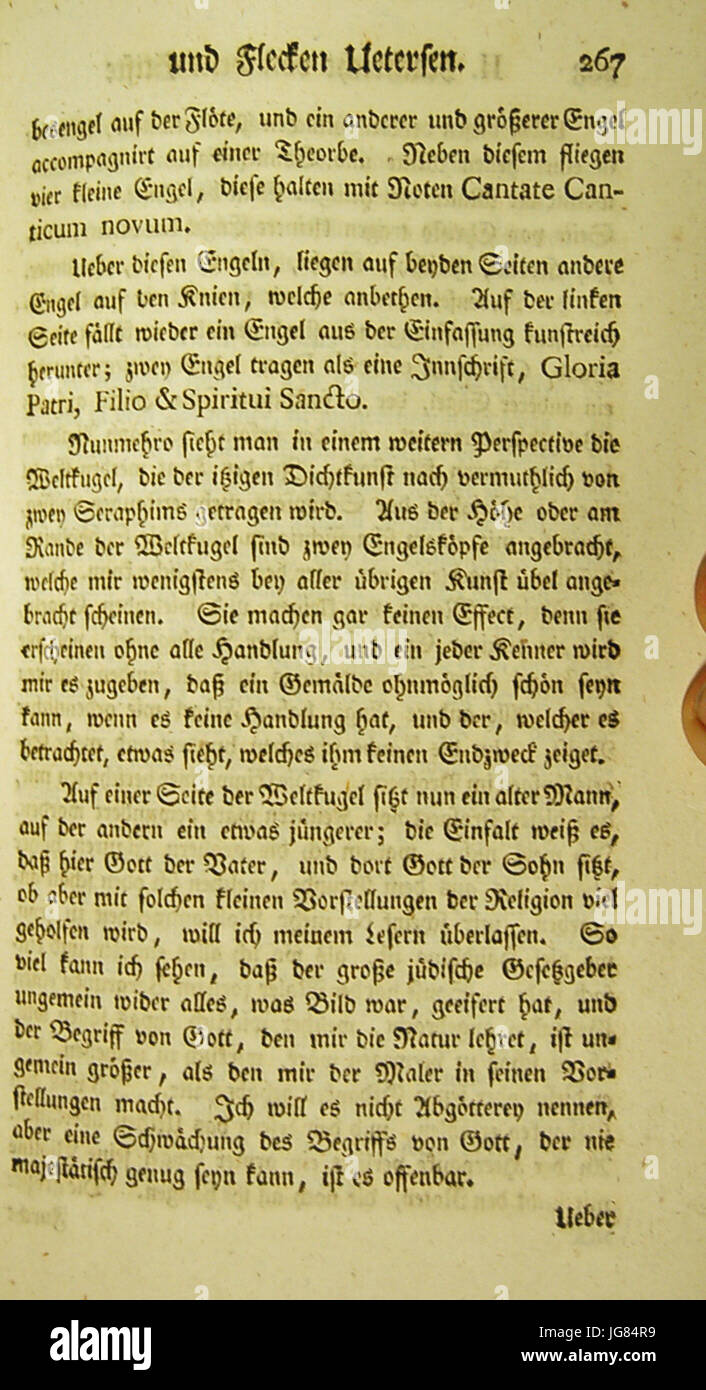 und Flecken Uetersen. 267
beengel auf der Flöte, und ein anderer und größerer Engel
accompagnirt auf einer Theorbe. Neben diesem fliegen
vier kleine Engel, diese halten mit Noten Cantate Can-
ticum novum.
Ueber diesen Engeln, liegen auf beyden Seiten andere
Engel auf den Knien, welche anbethen. Auf der linken
Seite fällt wieder ein Engel aus der Einfassung kunstreich
herunter; zwey Engel tragen als eine Innschrift, Gloria
Patri, Filio & Spiritui Sancto.
Nunmehro sieht man in einem weitern Perspective die
Weltkugel, die der itzigen Dichtkunst nach vermuthlich von
zwey Seraphims getragen wird. Aus der Höhe oder am
Rande der Weltkugel sind zwey Engelsköpfe angebracht,
welche mir wenigstens bey aller übrigen Kunst übel ange-
bracht scheinen. Sie machen gar keinen Effect, denn sie
erscheinen ohne alle Handlung, und ein jeder Kenner wird
mir es zugeben, daß ein Gemälde ohnmöglich schön seyn
kann, wenn es keine Handlung hat, und der, welcher es
betrachtet, etwas sieht, welches ihm keinen Endzweck zeiget.
Auf einer Seite der Weltkugel sitzt nun ein alter Mann,
auf der andern ein etwas jüngerer; die Einfalt weiß es,
daß hier Gott der Vater, und dort Gott der Sohn sitzt,
ob aber mit solchen kleinen Vorstellungen der Religion viel
geholfen wird, will ich meinem Lesern überlassen. So
viel kann ich sehen, daß der große jüdische Gesetzgeber
ungemein wider alles, was Bild war, geeifert hat, und
der Begriff von Gott, den mir die Natur lehret, ist un-
gemein größer, als den mir der Maler in seinen Vor-
stellungen macht. Ich will es nicht Abgötterey nennen,
aber eine Schwächung des Begriffs von Gott, der nie
majestätisch genug seyn kann, ist es offenbar.
Ueber
alamy
alamy
alamy
alamy
a
a
a
alamy
Image ID: JG84R9
www.alamy.com